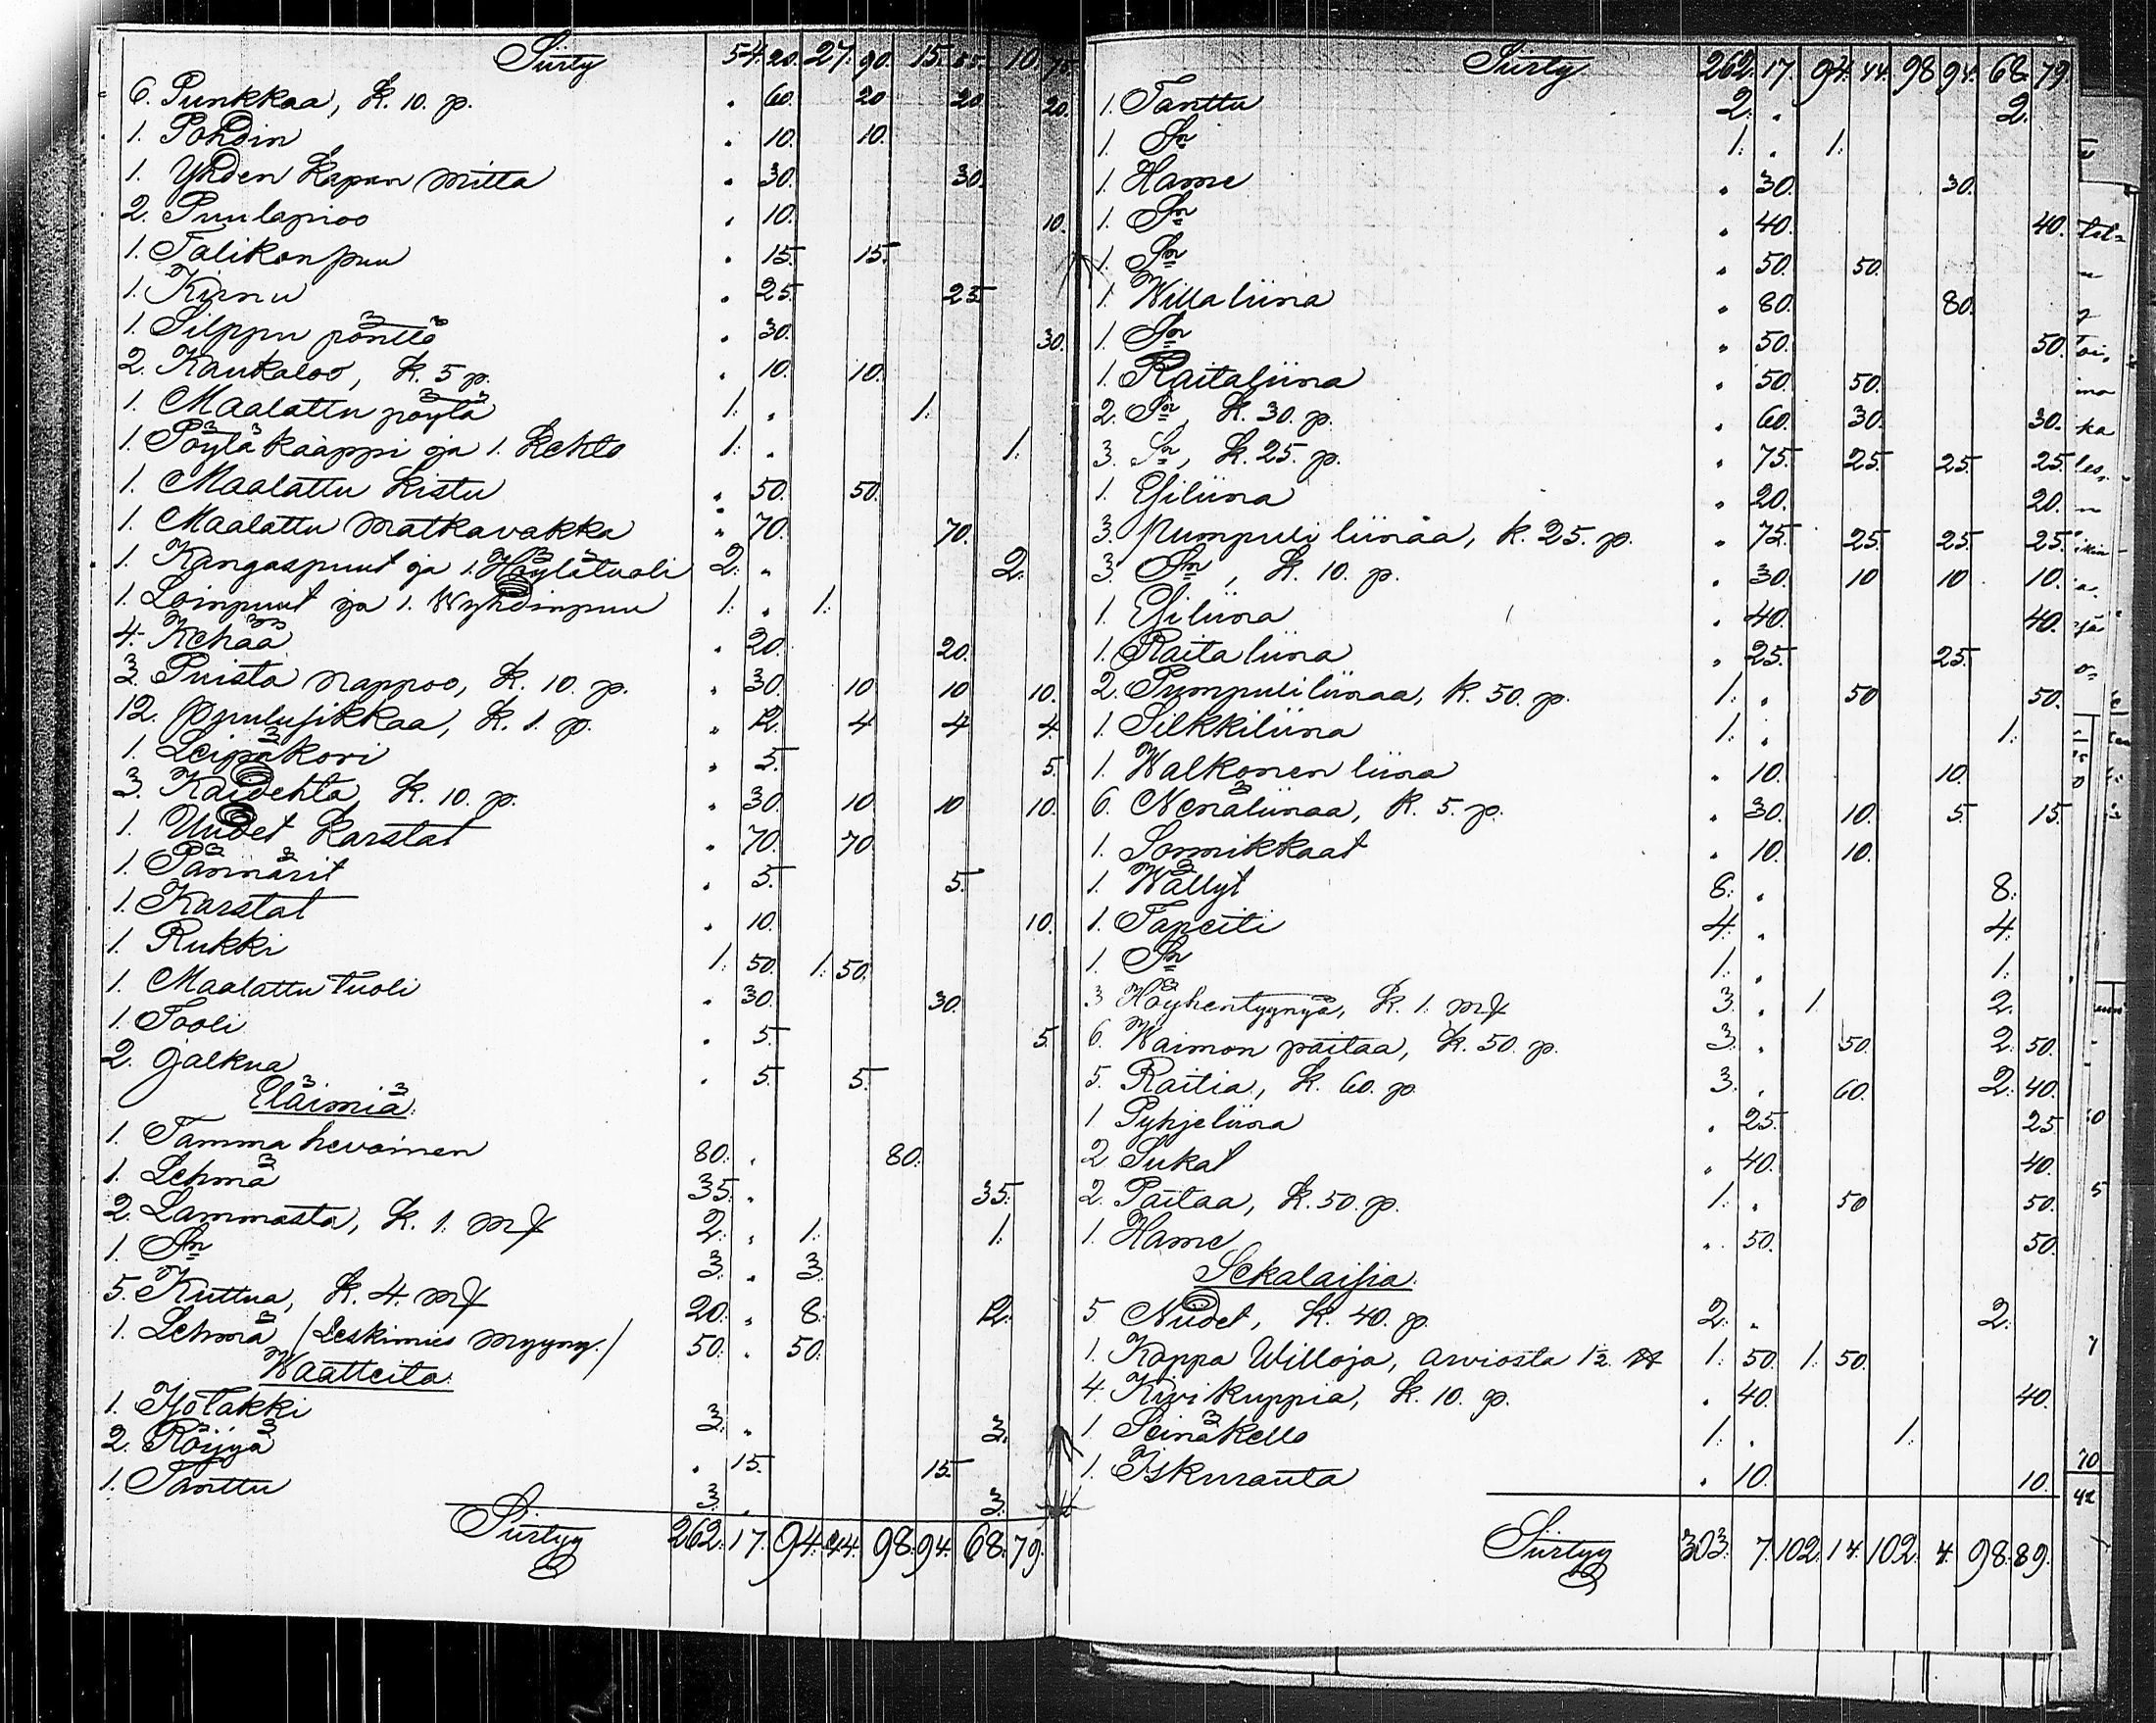 Siirty 54. 20. 27. 90. 15. 55. 10. 75.
6. Punkkaa, k. 10. p. „ 60. 20 20 20.
1. Pohdin „ 10. 10.
1. Yhden kapan mitta „ 30. 30.
2. Puulapioo „ 10. 10.
1. Talikon puu „ 15. 15.
1. Kirnu „ 25. 25
1. Silppu pönttö „ 30. 30.
2. Kaukaloo, k. 5 p. „ 10. 10.
1. Maalattu pöytä 1. „ 1.
1. Pöytäkaappi ja 1. kehto 1. „ 1.
1. Maalattu kistu „ 50. 50.
1. Maalattu matkavakka „ 70. 70.
1. Kangaspuut ja 1. Höylätuoli 2. „ 2.
1. Loinpuut ja 1. Wyhdinpuu 1. „ 1.
4. Kehää „ 20. 20.
3. Puista nappoo, k. 10. p. „ 30. 10 10 10.
12. ppulusikkaa, k. 1. p. „ 12. 4 4 4.
1. Leipäkori „ 5. 5.
3. Kaidehta, k. 10. p. „ 30. 10. 10 10.
1. Uudet karstat „ 70. 70.
1. Pännärit „ 5. 5.
1. Karstat „ 10. 10.
1. Rukki 1. 50. 1. 50.
1. Maalattu tuoli „ 30. 30.
1. Tooli „ 5. 5.
2. jalkua „ 5. 5.
Eläimiä.
1. Tamma hevoinen 80. „ 80.
1. Lehmä 35. „ 35.
2. Lammasta, k. 1. mk 2. „ 1. 1.
1. Sn 3. „ 3.
5. Kuttua, k. 4. mk 20. „ 8. 12.
1. Lehmä /Leskimies myyny./ 50. „ 50.
Waatteita.
1. Isötakki 3. „ 3.
2. Röijyä „ 15. 15.
1. Tanttu 3. „ 3.
Siirtyy 262. 17. 94. 44. 98. 94. 68. 79.
Siirty 262. 17. 94. 44. 98. 94. 68. 79.
1. Tanttu 2. „ 2.
1. Sn 1. „ 1.
1. Hame „ 30. 30.
1. Sn „ 40. 40.
1. Sn „ 50. 50.
1. Willa liina „ 80. 80.
1. Sn „ 50. 50.
1. Raitaliina „ 50. 50.
2. Sn, k. 30. p. „ 60. 30. 30.
3. Sn, k. 25. p. „ 75. 25. 25. 25.
1. Esiliina „ 20. 20.
3. Pumpuli liinaa, k. 25. p. „ 75. 25. 25. 25.
3. Sn, k. 10. p. „ 30. 10 10 10.
1. Esiliina „ 40. 40.
1. Raita liina „ 25. 25.
2. Pumpuliliinaa, k. 50. p. 1. „ 50 50.
1. Silkkiliina 1. „ 1.
1. Walkonen liina „ 10. 10.
6. Nenäliinaa, k. 5. p. „ 30. 10. 5. 15.
1. Sormikkaat „ 10. 10.
1. Wällyt 8. „ 8.
1. Tapeiti 4. „ 4.
1. Sn 1. „ 1.
3 Höyhentyynyä, k. 1. mk 3. „ 1. 2.
6. Waimon paitaa, k. 50. p. 3. „ 50. 2. 50.
5. Raitia, k. 60. p. 3. „ 60. 2. 40.
1 Pyhjeliina „ 25. 25
2 Sukat „ 40. 40.
2. Paitaa, k. 50. p. 1. „ 50 50.
1. Hame „ 50. 50.
Sekalaisia.
5 Niidet, k. 40. p. 2. „ 2.
1. Kappa Willoja, arviosta 1/2 1. 50. 1. 50.
4. Kivikuppia, k. 10. p. „ 40. 40.
1. Seinäkello 1. „ 1.
1. Iskurauta „ 10. 10.
Siirtyy 303. 7. 102. 14. 102. 4. 98. 89.